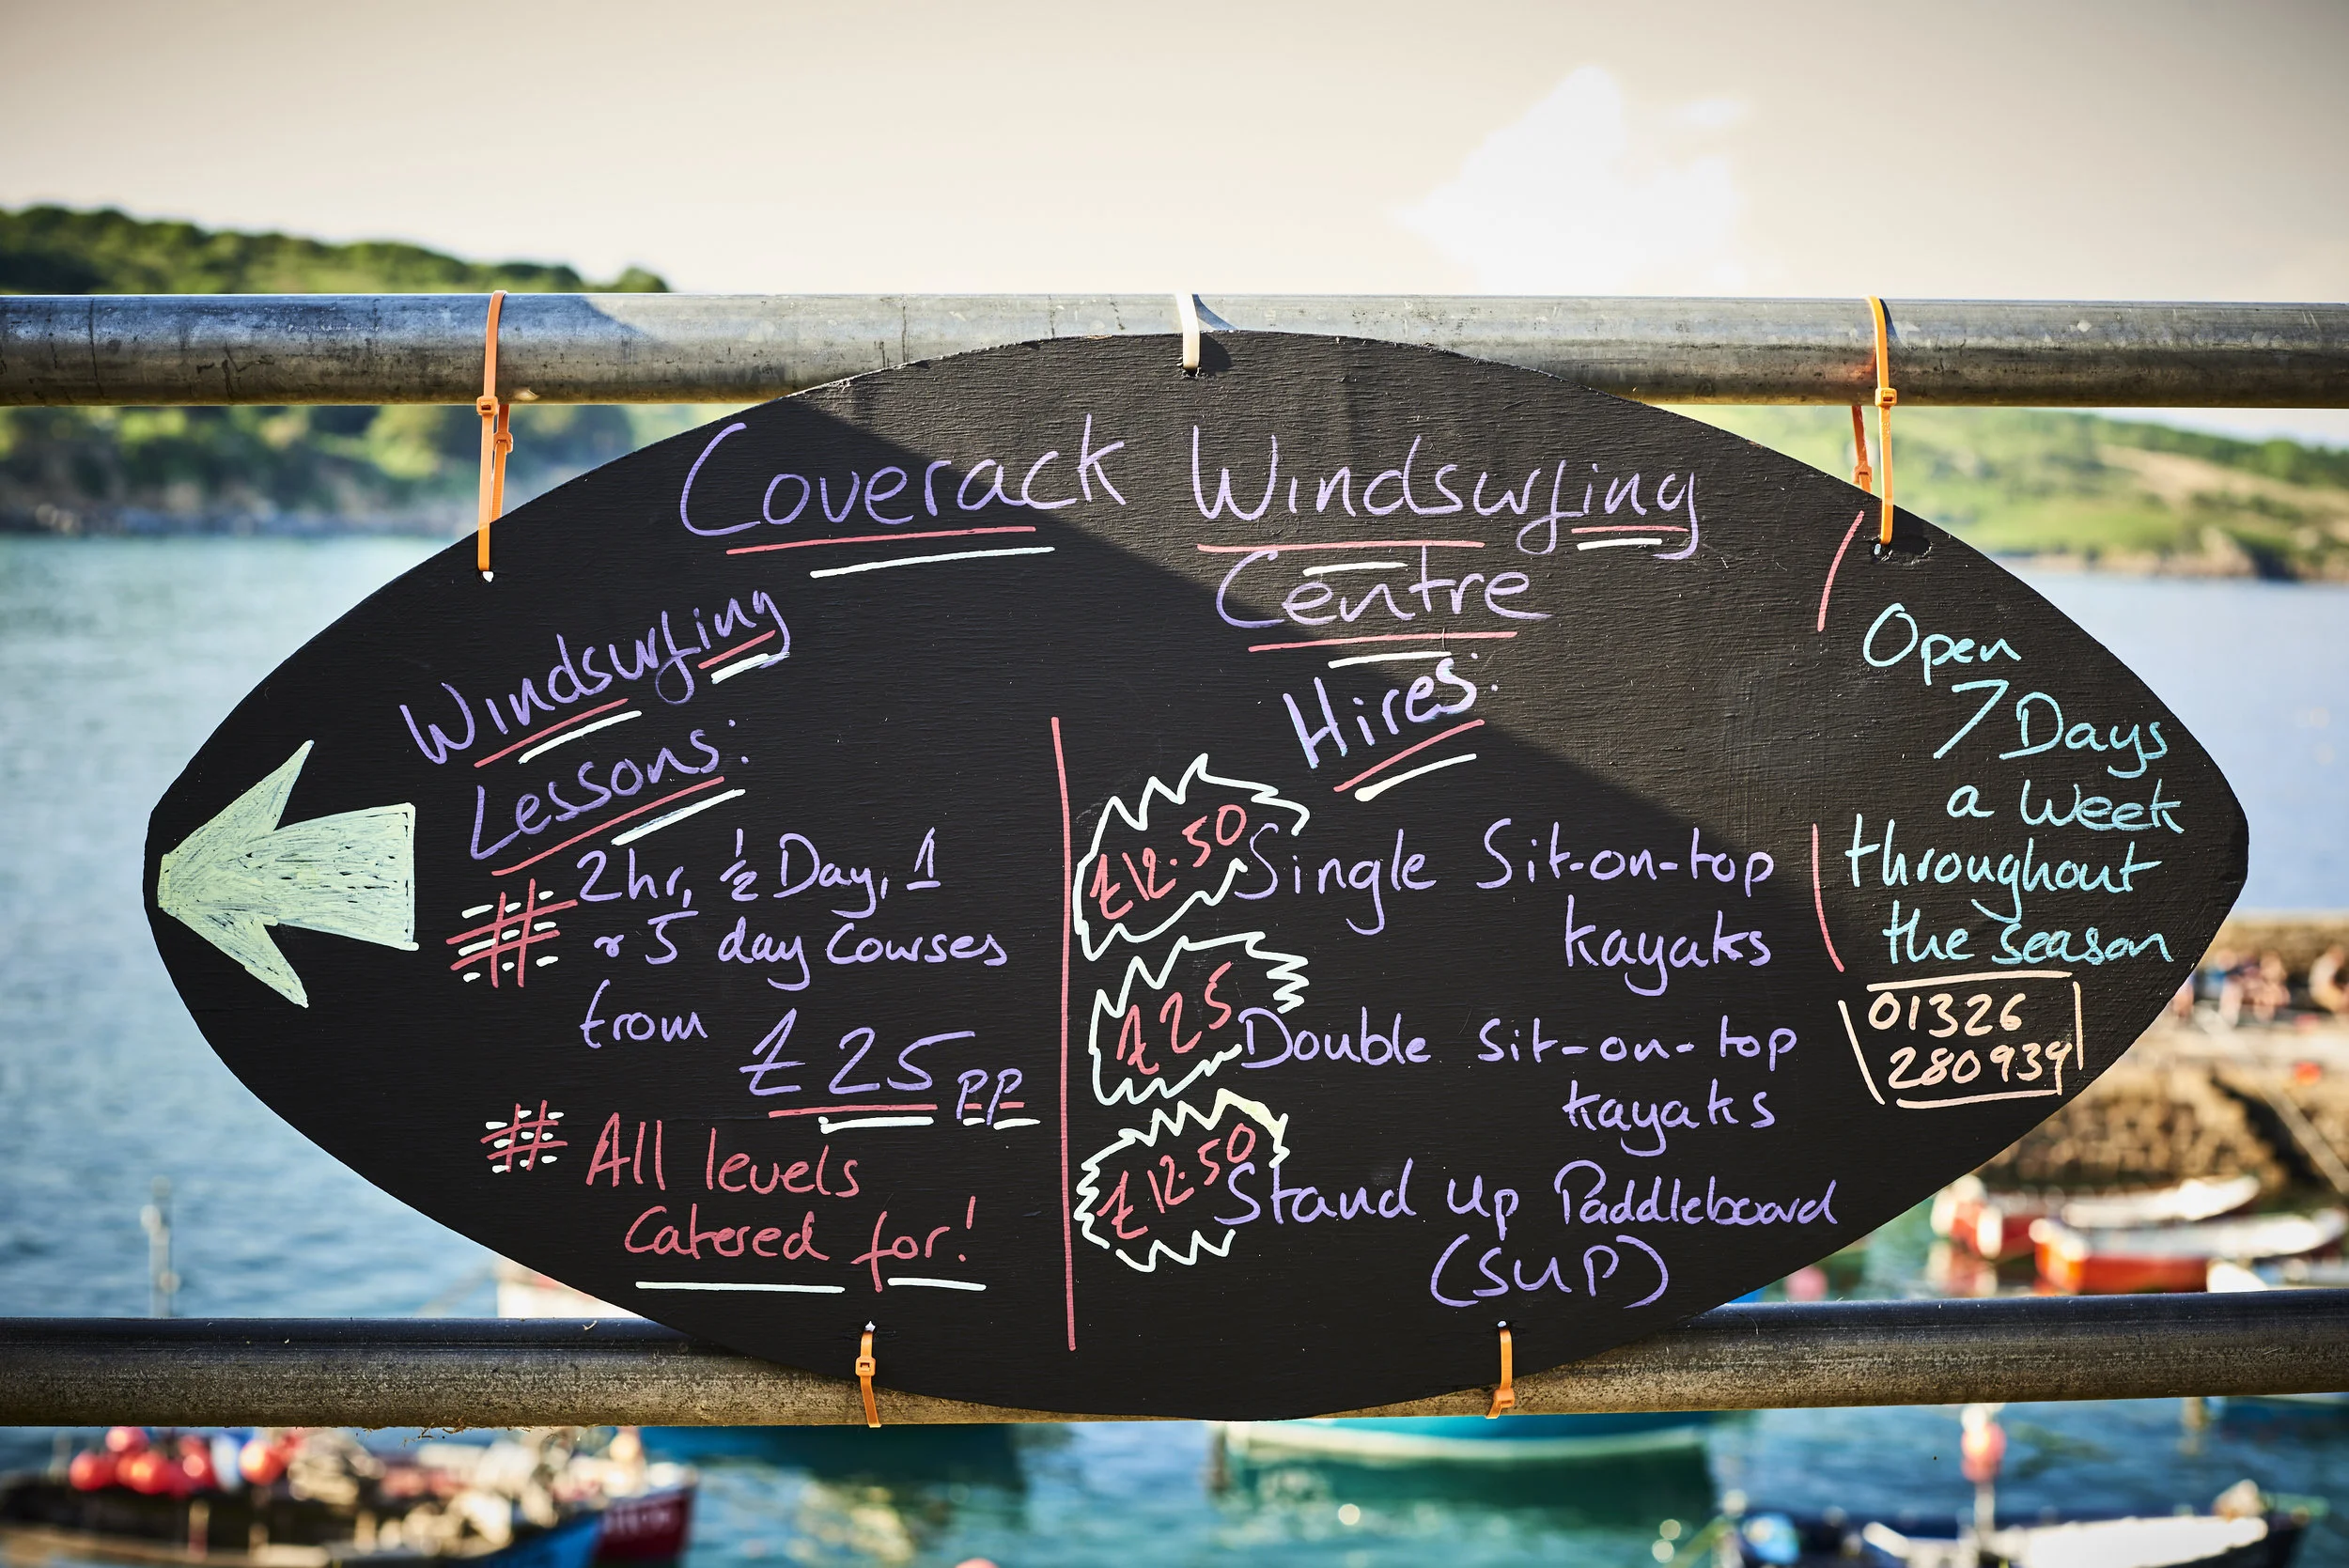 Coverack Windsurfing
Centre
Windsurfing
Lessons:
# 2hr, ½ Day, 1
& 5 day courses
from
£25 pp
# All levels
Catered for!
Hires:
£12.50 Single Sit-on-top
kayaks
£25 Double Sit-on-top
kayaks
£12.50 Stand up Paddleboard
(SUP)
Open
7 Days
a Week
throughout
the season
01326
280939